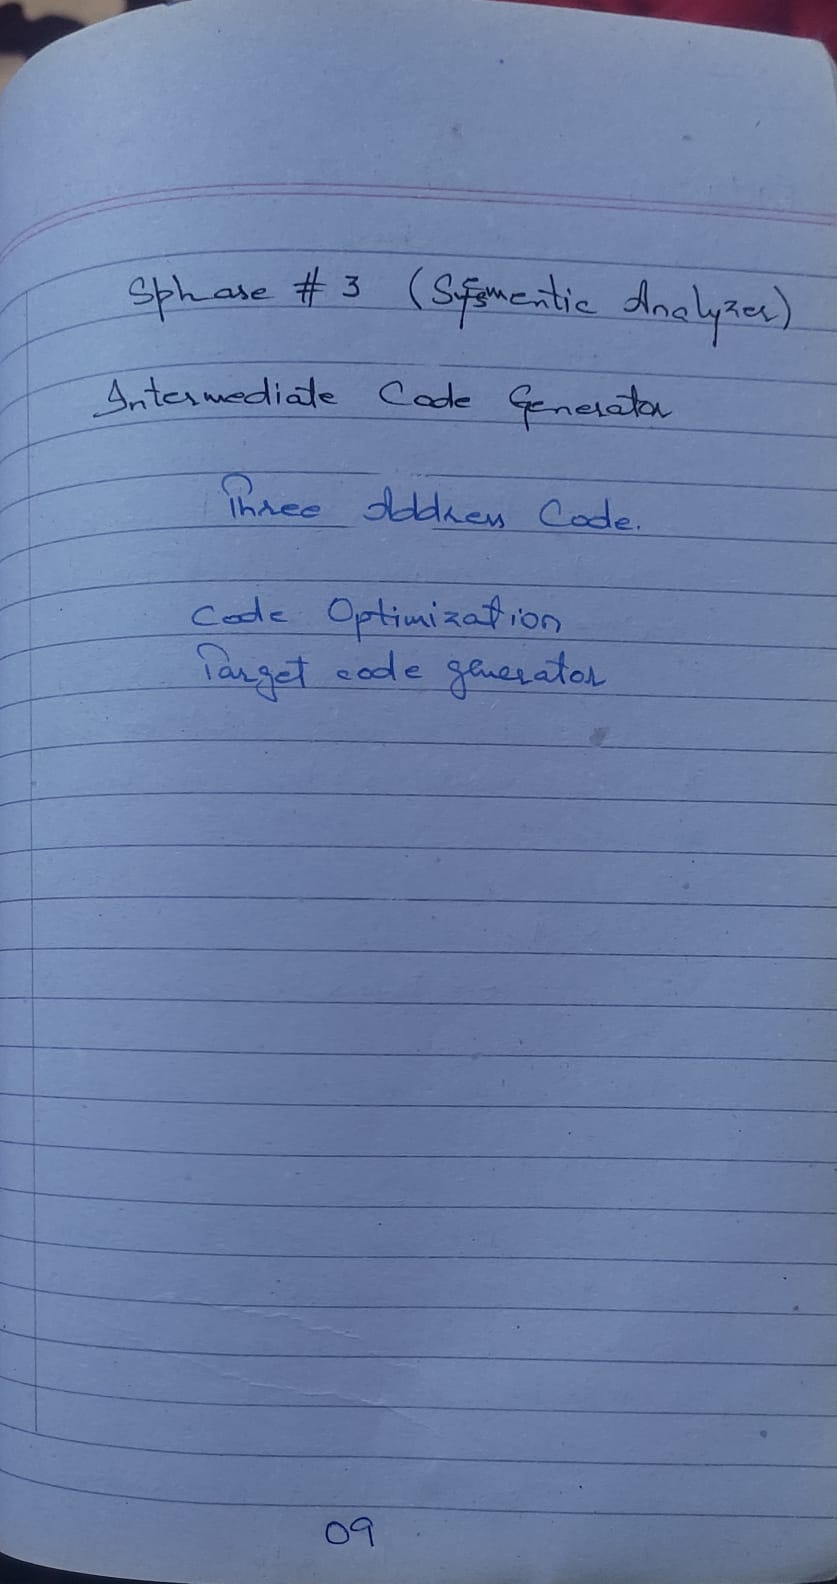 Sphase # 3 (Sysmentic Analyzer)
Intermediate Code Generator
Three Address Code.
Code Optimization
Target code generator
09